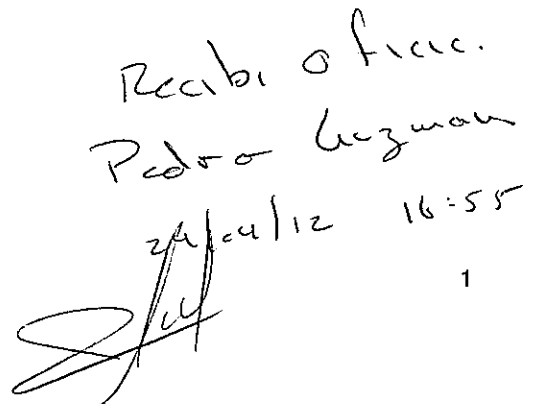 Recibi oficio.
Pedro Guzman
24/04/12 16:55
1